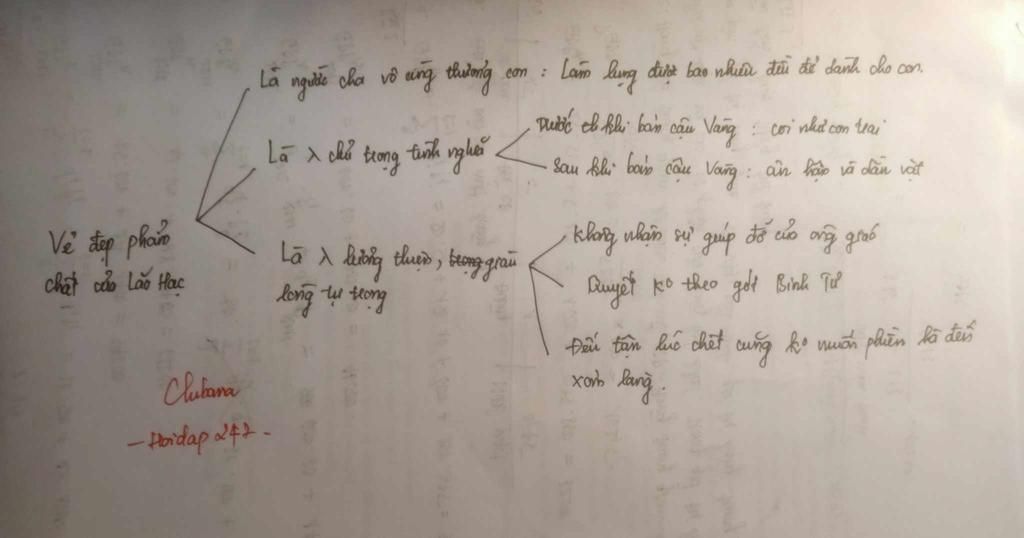 Là người cha vô cùng thương con : Làm lụng được bao nhiêu đều để dành cho con.
Là λ chú trọng tình nghĩa
Trước khi bán cậu Vàng : coi như con trai
Sau khi bán cậu Vàng : ân hận và dằn vặt
Vẻ đẹp phẩm
chất của Lão Hạc
Là λ lương thiện, giàu
lòng tự trọng
Không nhận sự giúp đỡ của ông giáo
Quyết ko theo gót Binh Tư
Đến tận lúc chết cũng ko muốn phiền hà đến
xóm làng.
Clubana
- Hoidap 247 -